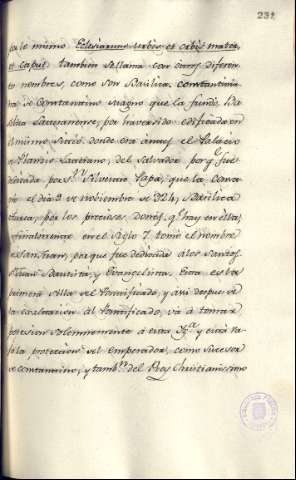 231
lo mismo Eclesiarum urbis, et orbis mater,
et caput tambien se llama con otros diferen
tes nombres, como son Basilica constantinia
na de Constantino magno que la fundó, Ba
silica Lateranense, por haverse edificado en
el mismo sitio donde era antes el Palacio
Plaucio Laterano, del Salvador por q.e fue
dedicada por S.n Silvestre Papa, que la consa
gró el dia 9 de noviembre de 324, Basilica
por los preciosos dones q.e hay en ella,
y finalmente en el siglo 7 tomó el nombre
de San Juan, porque fue dedicada a los Santos
Juan Bautista, y Evangelista. Esta es la
primera silla del Pontificado, y asi despues de
la exaltacion al Pontificado, vá à tomar
posesion solemnemente à esta Yg.a y está ba
jo la proteccion del emperador, como sucesor
de constantino, y tamb.n del Rey Christianissimo